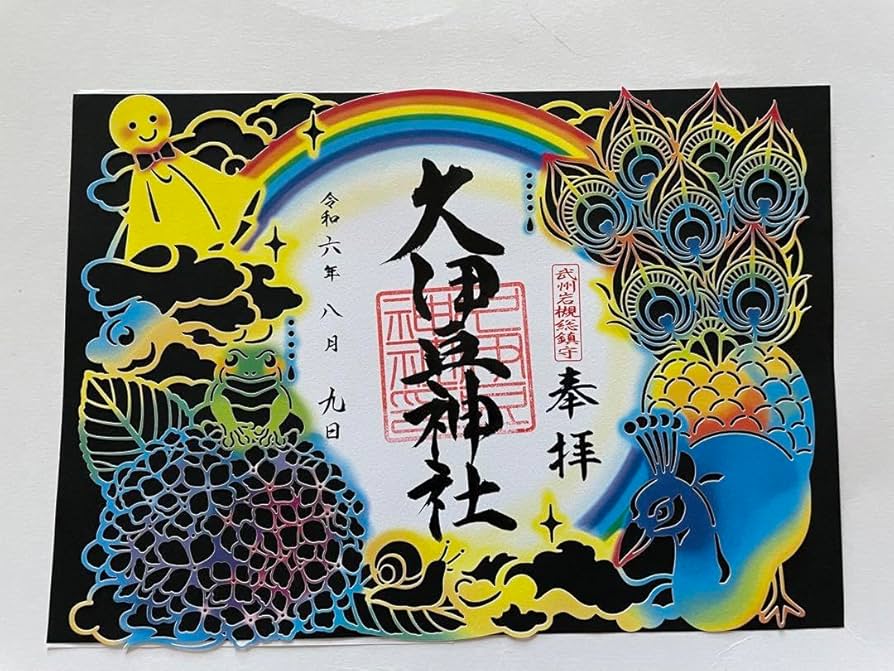 武州岩槻総鎮守
奉拝
久伊豆神社
令和六年八月九日